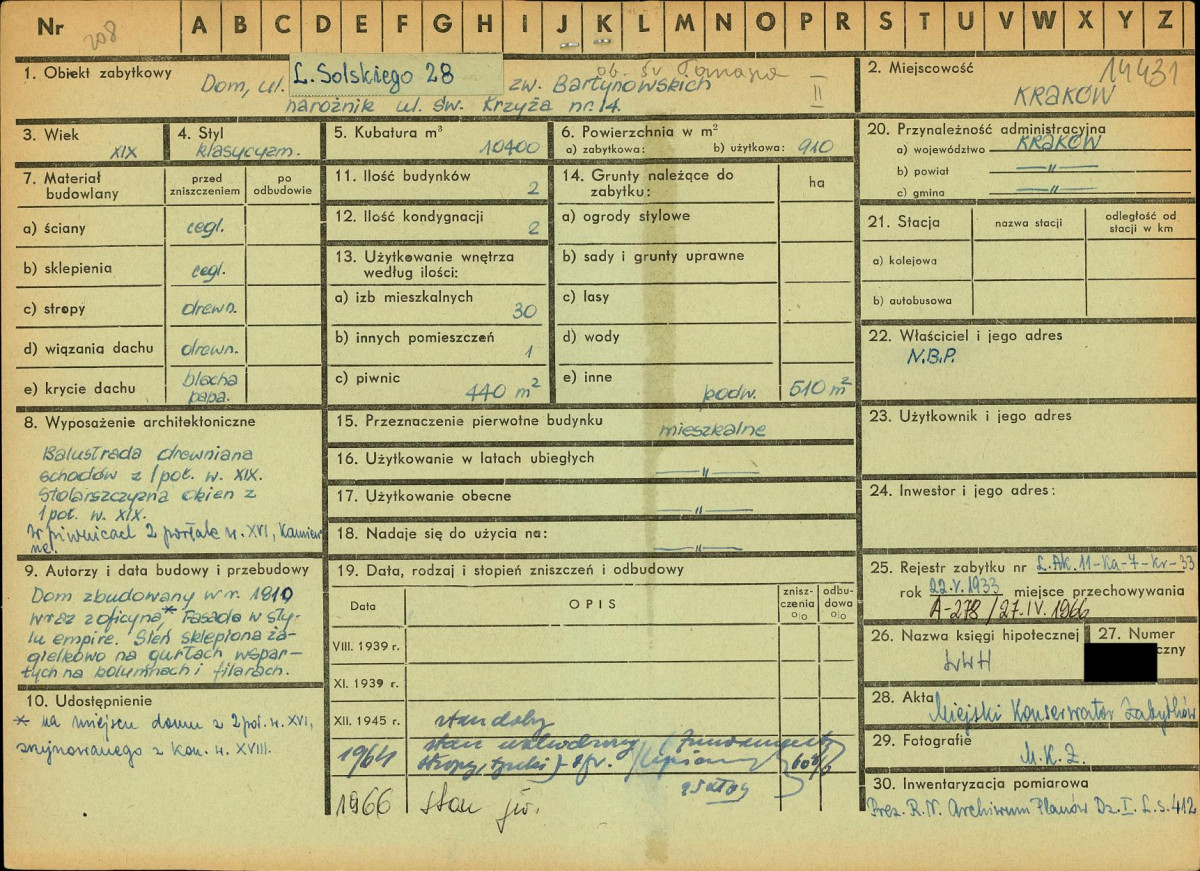 Nr 208 A B C D E F G H I J K L M N O P R S T U V W X Y Z
1. Obiekt zabytkowy
Dom, ul. L. Solskiego 28 zw. Bartynowskich
ob. Św Tomasza
II
narożnik ul. św. Krzyża nr. 14.
2. Miejscowość
14431
KRAKÓW
3. Wiek
XIX
4. Styl
klasycyzm.
5. Kubatura m³
10400
6. Powierzchnia w m²
a) zabytkowa: b) użytkowa: 910
20. Przynależność administracyjna
a) województwo KRAKÓW
b) powiat —"—
c) gmina —"—
7. Materiał budowlany
przed zniszczeniem
po odbudowie
a) ściany cegl.
b) sklepienia cegl.
c) stropy drewn.
d) wiązania dachu drewn.
e) krycie dachu blacha papa.
11. Ilość budynków 2
12. Ilość kondygnacji 2
13. Użytkowanie wnętrza według ilości:
a) izb mieszkalnych 30
b) innych pomieszczeń 1
c) piwnic 440 m²
14. Grunty należące do zabytku: ha
a) ogrody stylowe
b) sady i grunty uprawne
c) lasy
d) wody
e) inne podw. 510 m²
21. Stacja
nazwa stacji
odległość od stacji w km
a) kolejowa
b) autobusowa
22. Właściciel i jego adres
N.B.P.
8. Wyposażenie architektoniczne
Balustrada drewniana
schodów z 1 poł. w. XIX.
Stolarszczyzna okien z
1 poł. w. XIX.
W piwnicach 2 portale w. XVI, kamien
ne.
15. Przeznaczenie pierwotne budynku
mieszkalne
16. Użytkowanie w latach ubiegłych
—"—
17. Użytkowanie obecne
—"—
18. Nadaje się do użycia na:
—"—
23. Użytkownik i jego adres
24. Inwestor i jego adres:
9. Autorzy i data budowy i przebudowy
Dom zbudowany w r. 1810
wraz z oficyną,* Fasada w sty-
lu empire. Sień sklepiona ża-
gielkowo na gurtach wspar-
tych na kolumnach i filarach.
10. Udostępnienie
* na miejscu domu z 2 poł. w. XVI,
zrujnowanego z kon. w. XVIII.
19. Data, rodzaj i stopień zniszczeń i odbudowy
Data
OPIS
zniszczenia o/o
odbudowa o/o
VIII. 1939 r.
XI. 1939 r.
XII. 1945 r. stan dobry
1964
stropy, tynki
60%
1966 stan jw.
25. Rejestr zabytku nr L.AK.11-Ka-7-Kr-33
rok 22.V.1933 miejsce przechowywania
A-278/27.IV.1966
26. Nazwa księgi hipotecznej
LWH
27. Numer
czny
28. Akta
Miejski Konserwator Zabytków
29. Fotografie
M.K.Z.
30. Inwentaryzacja pomiarowa
Prez. R.N. Archiwum Planów Dz. I. L.s. 412